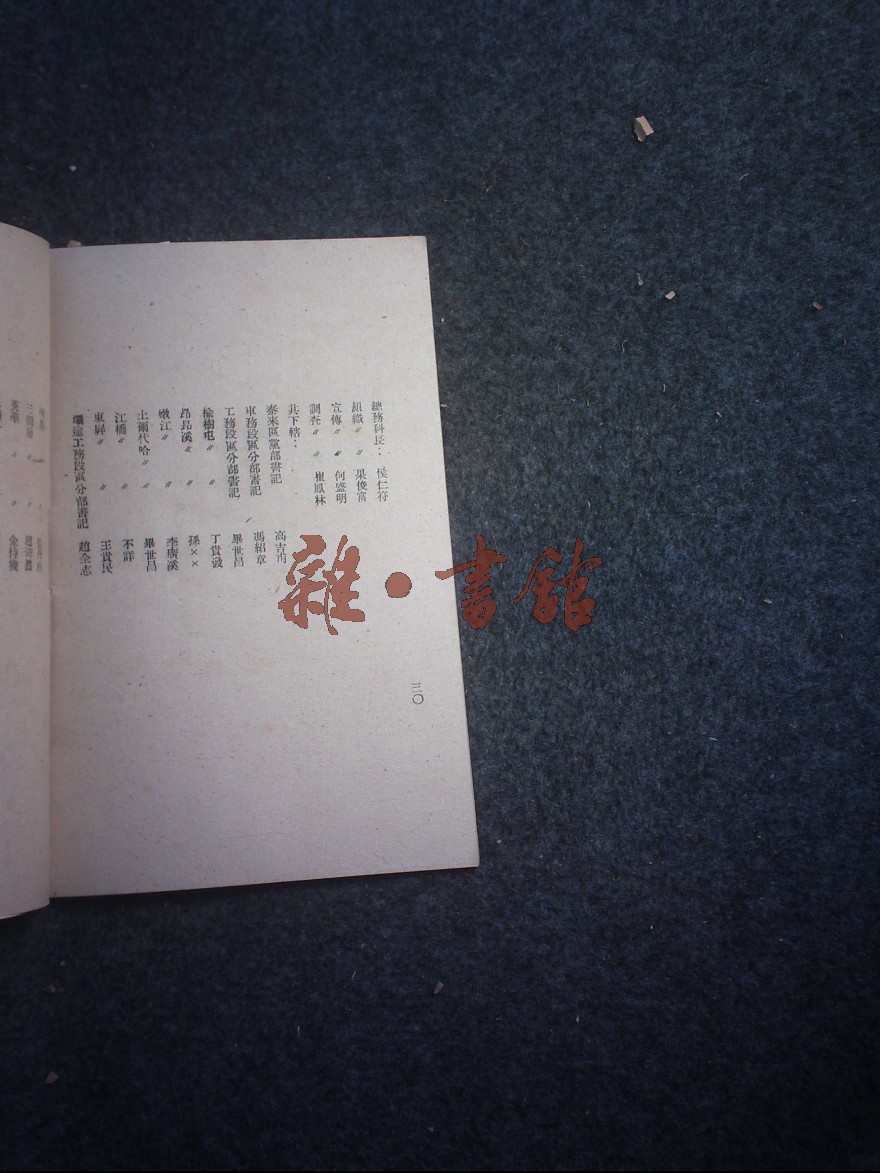 總務科長：侯仁符
組織〃　〃　果俊富
宣傳〃　〃　何盛明
調查〃　〃　崔鳳林
其下轄：
泰來區黨部書記　高吉甫
車務段區分部書記　馮紹章
工務段區分部書記　畢世昌
榆樹屯〃　〃　丁貴
昂昂溪〃　〃　孫××
嫩江〃　〃　李廣溪
土爾代哈〃　〃　畢世昌
江橋〃　〃　不詳
東屏〃　〃　王貴民
工務段區分部書記　趙全志
三〇
英　〃　〃　金持
雜·書館